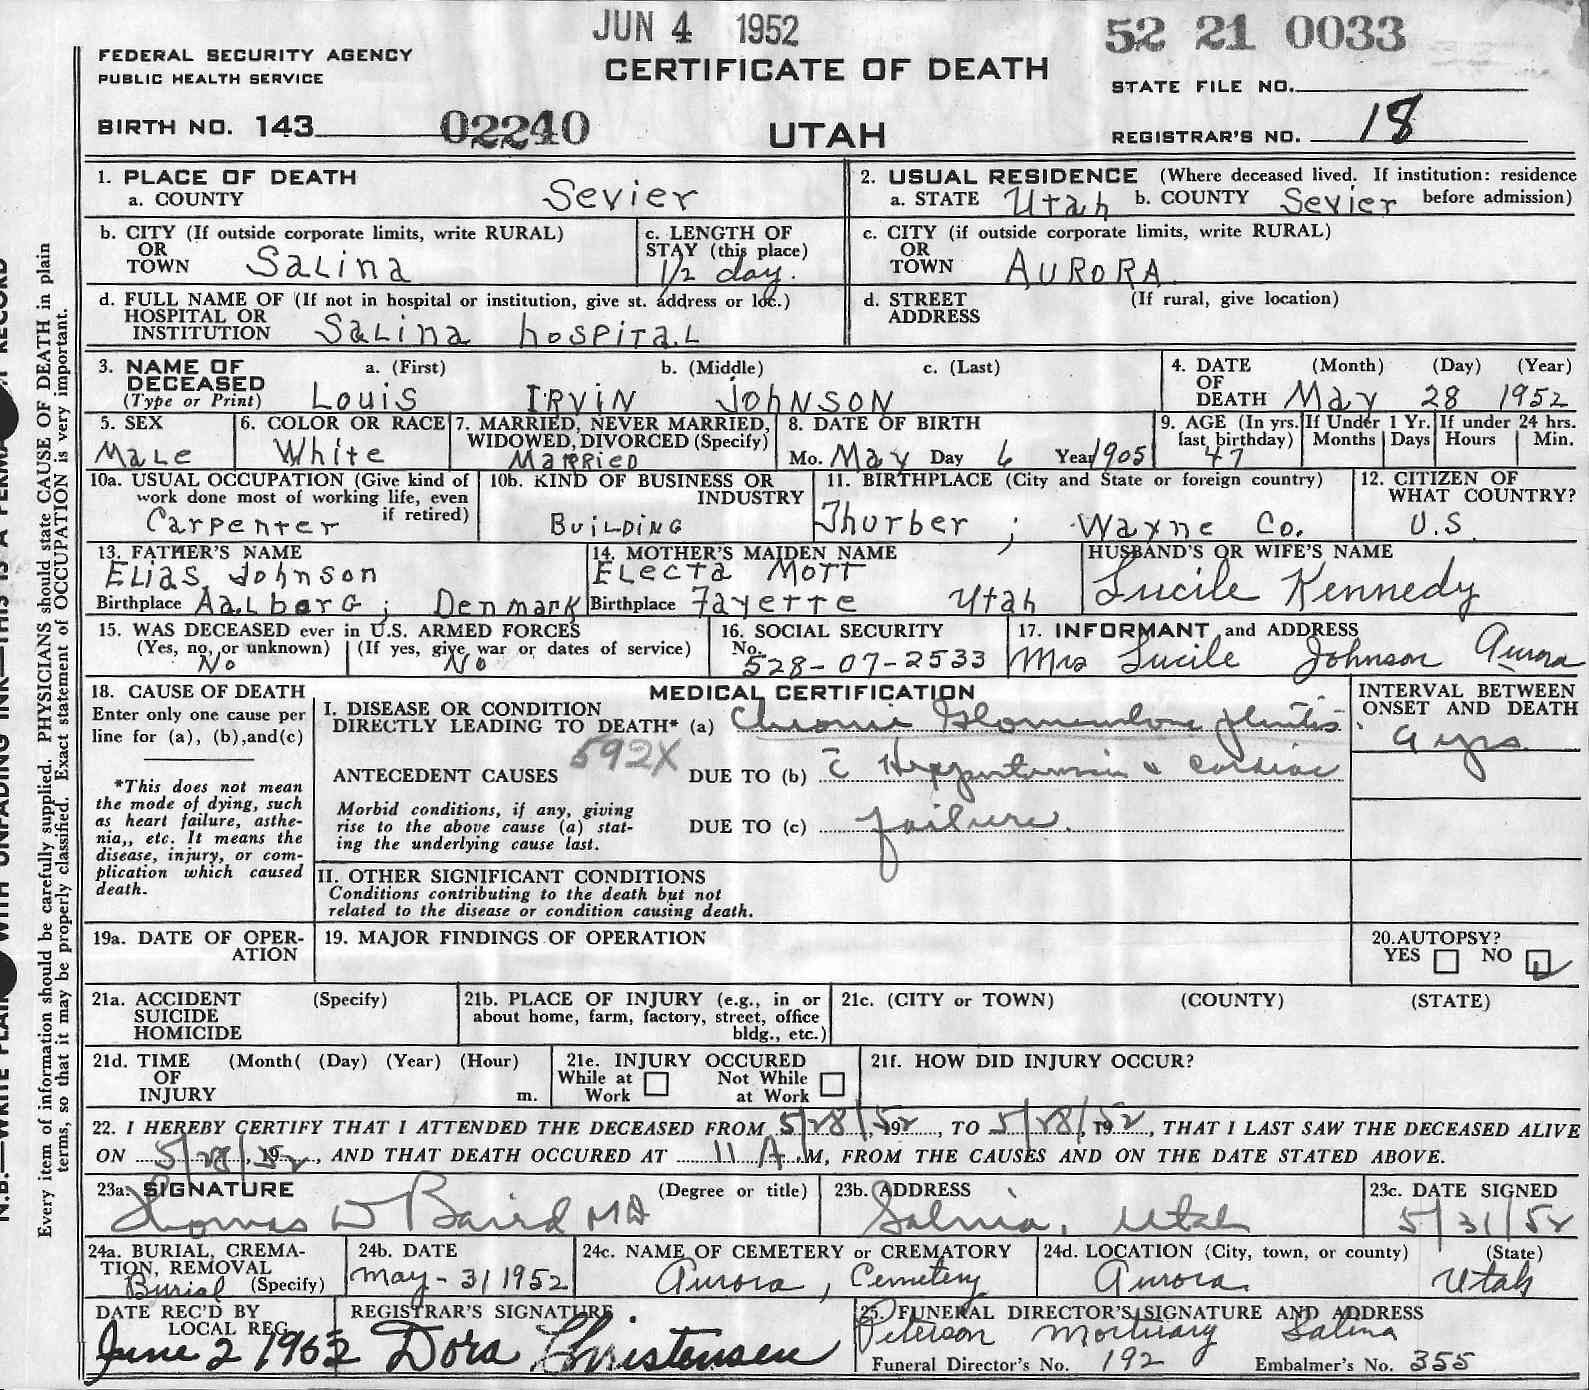 JUN 4 1952
52 21 0033
FEDERAL SECURITY AGENCY
PUBLIC HEALTH SERVICE
CERTIFICATE OF DEATH
STATE FILE NO.
BIRTH NO. 143 02240
UTAH
REGISTRAR'S NO. 18
1. PLACE OF DEATH
a. COUNTY Sevier
2. USUAL RESIDENCE (Where deceased lived. If institution: residence before admission)
a. STATE Utah b. COUNTY Sevier
b. CITY (If outside corporate limits, write RURAL)
OR
TOWN Salina
c. LENGTH OF
STAY (this place)
1/2 day.
c. CITY (if outside corporate limits, write RURAL)
OR
TOWN AURORA
d. FULL NAME OF (If not in hospital or institution, give st. address or loc.)
HOSPITAL OR
INSTITUTION Salina hospital
d. STREET (If rural, give location)
ADDRESS
3. NAME OF a. (First) b. (Middle) c. (Last)
DECEASED
(Type or Print) Louis IRVIN JOHNSON
4. DATE (Month) (Day) (Year)
OF
DEATH May 28 1952
5. SEX
Male
6. COLOR OR RACE
White
7. MARRIED, NEVER MARRIED,
WIDOWED, DIVORCED (Specify)
Married
8. DATE OF BIRTH
Mo. May Day 6 Year 1905
9. AGE (In yrs. last birthday)
47
If Under 1 Yr.
Months Days
If under 24 hrs.
Hours Min.
10a. USUAL OCCUPATION (Give kind of
work done most of working life, even
if retired)
Carpenter
10b. KIND OF BUSINESS OR
INDUSTRY
BUILDING
11. BIRTHPLACE (City and State or foreign country)
Thurber ; Wayne Co.
12. CITIZEN OF
WHAT COUNTRY?
U.S.
13. FATHER'S NAME
Elias Johnson
Birthplace Aalborg; Denmark
14. MOTHER'S MAIDEN NAME
Electa Mott
Birthplace Fayette Utah
HUSBAND'S OR WIFE'S NAME
Lucile Kennedy
15. WAS DECEASED ever in U.S. ARMED FORCES
(Yes, no, or unknown) (If yes, give war or dates of service)
No No
16. SOCIAL SECURITY
No.
528-07-2533
17. INFORMANT and ADDRESS
Mrs Lucile Johnson Aurora
18. CAUSE OF DEATH
Enter only one cause per
line for (a), (b),and(c)
*This does not mean
the mode of dying, such
as heart failure, asthe-
nia,, etc. It means the
disease, injury, or com-
plication which caused
death.
MEDICAL CERTIFICATION
I. DISEASE OR CONDITION
DIRECTLY LEADING TO DEATH* (a) Chronic Glomerulonephritis
592X
ANTECEDENT CAUSES DUE TO (b) c̄ Hypertension & cardiac
Morbid conditions, if any, giving
rise to the above cause (a) stat-
ing the underlying cause last.
DUE TO (c) failure.
INTERVAL BETWEEN
ONSET AND DEATH
yrs.
II. OTHER SIGNIFICANT CONDITIONS
Conditions contributing to the death but not
related to the disease or condition causing death.
19a. DATE OF OPER-
ATION
19. MAJOR FINDINGS OF OPERATION
20.AUTOPSY?
YES NO
21a. ACCIDENT (Specify)
SUICIDE
HOMICIDE
21b. PLACE OF INJURY (e.g., in or
about home, farm, factory, street, office
bldg., etc.)
21c. (CITY or TOWN) (COUNTY) (STATE)
21d. TIME (Month( (Day) (Year) (Hour)
OF
INJURY m.
21e. INJURY OCCURED
While at Work Not While at Work
21f. HOW DID INJURY OCCUR?
22. I HEREBY CERTIFY THAT I ATTENDED THE DECEASED FROM 5/28/, 1952, TO 5/28/, 1952, THAT I LAST SAW THE DECEASED ALIVE
ON 5/28/52, 19, AND THAT DEATH OCCURED AT 11 A.M, FROM THE CAUSES AND ON THE DATE STATED ABOVE.
23a. SIGNATURE (Degree or title)
Thomas W Baird MD
23b. ADDRESS
Salina, Utah
23c. DATE SIGNED
5/31/52
24a. BURIAL, CREMA-
TION, REMOVAL
Burial (Specify)
24b. DATE
May - 31 1952
24c. NAME OF CEMETERY or CREMATORY
Aurora, Cemetery
24d. LOCATION (City, town, or county) (State)
Aurora. Utah
DATE REC'D BY
LOCAL REG.
June 2 1952
REGISTRAR'S SIGNATURE
Dora Christensen
25. FUNERAL DIRECTOR'S SIGNATURE AND ADDRESS
Peterson Mortuary Salina
Funeral Director's No. 192 Embalmer's No. 355
Every item of information should be carefully supplied. PHYSICIANS should state CAUSE OF DEATH in plain
terms, so that it may be properly classified. Exact statement of OCCUPATION is very important.